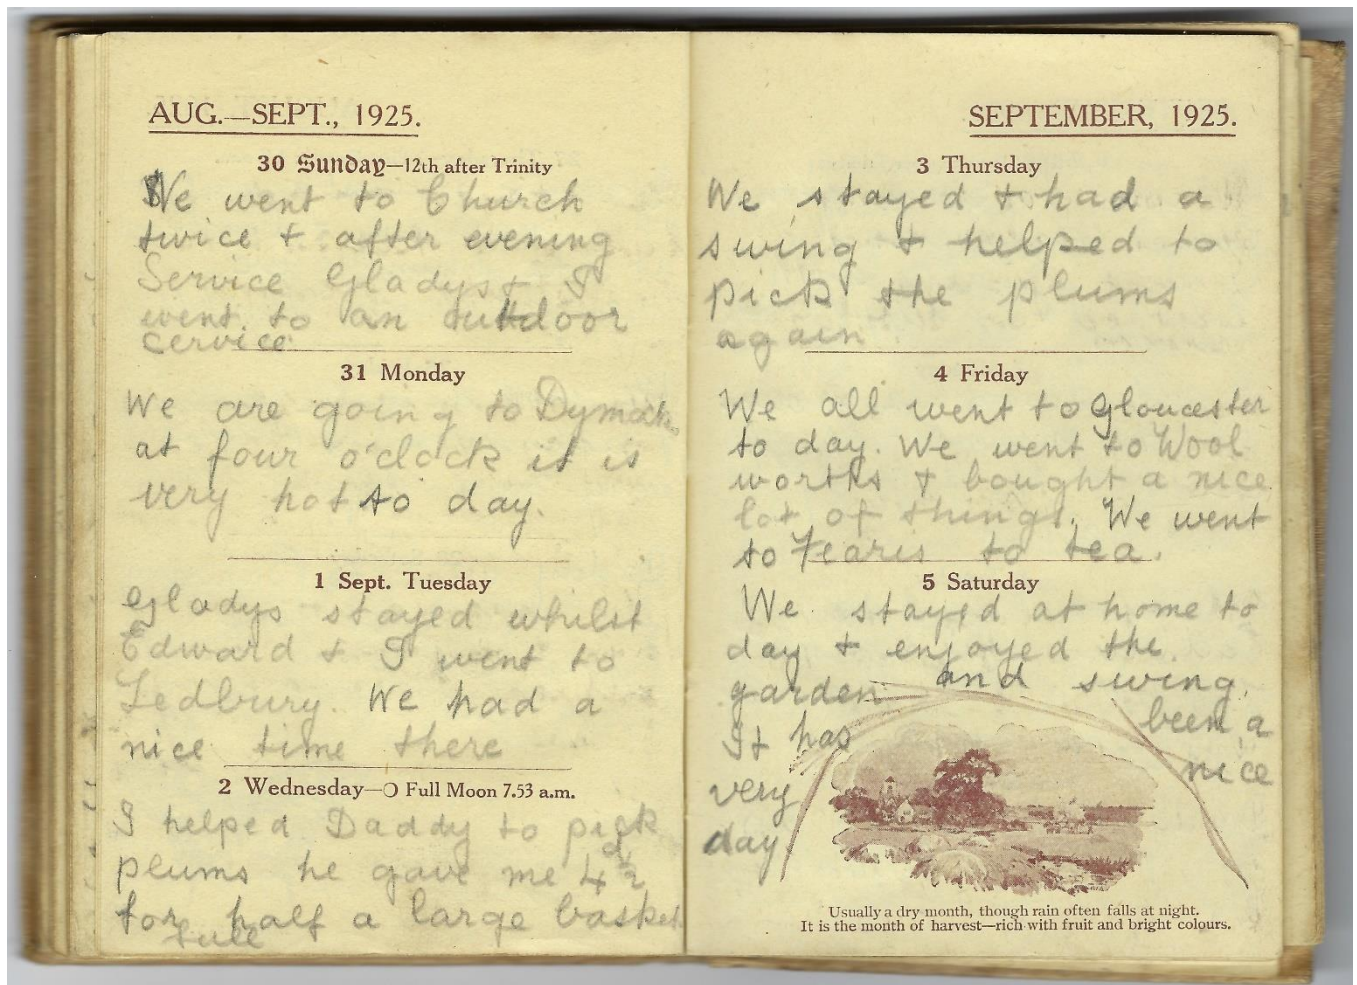 AUG.—SEPT., 1925.
30 Sunday—12th after Trinity
We went to Church
twice & after evening
Service Gladys & I
went to an outdoor
cervice
31 Monday
We are going to Dymock
at four o'clock it is
very hot to day.
1 Sept. Tuesday
Gladys stayed whilst
Edward & I went to
Ledbury. We had a
nice time there
2 Wednesday—O Full Moon 7.53 a.m.
I helped Daddy to pick
plums he gave me 4½
for half a large basket
full
SEPTEMBER, 1925.
3 Thursday
We stayed & had a
swing & helped to
pick the plums
again
4 Friday
We all went to Gloucester
to day. We went to Wool
worths & bought a nice
lot of things. We went
to to tea.
5 Saturday
We stayed at home to
day & enjoyed the
garden and swing.
It has been a
very nice
day
Usually a dry month, though rain often falls at night.
It is the month of harvest—rich with fruit and bright colours.